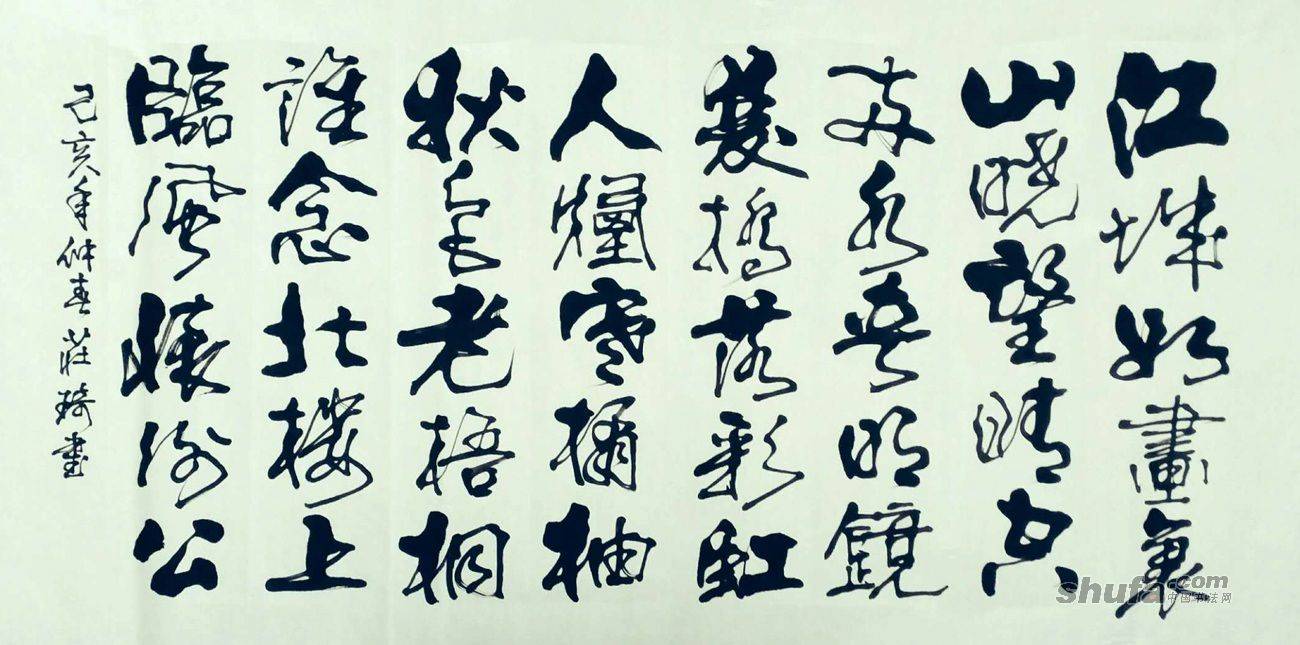 江城如畫裏
山曉望晴空
兩水夾明鏡
雙橋落彩虹
人煙寒橘柚
秋色老梧桐
誰念北樓上
臨風懷謝公
己亥年仲春莊琦書
shufa.com
中国书法网